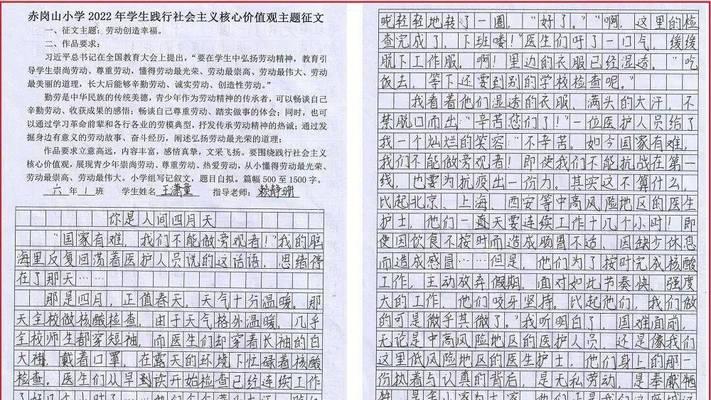 赤岗山小学2022年学生践行社会主义核心价值观主题征文
一、征文主题：劳动创造幸福。
二、作品要求：
习近平总书记在全国教育大会上提出，“要在学生中弘扬劳动精神，教育引
导学生崇尚劳动、尊重劳动，懂得劳动最光荣、劳动最崇高、劳动最伟大、劳动
最美丽的道理，长大后能够辛勤劳动、诚实劳动、创造性劳动。”
勤劳是中华民族的传统美德，青少年作为劳动精神的传承者，可以畅谈自己
辛勤劳动、收获成果的感悟；畅谈自己尊重劳动、踏实做事的体会；同时，也可
以通过学习革命前辈和各行各业的劳模典型，抒发传承劳动精神的热诚；通过发
掘身边有意义的劳动故事、奋斗经历，阐述弘扬劳动最光荣的道理；
作品要求立意高远，内容丰富，感情真挚，文采飞扬。要围绕践行社会主义
核心价值观，展现青少年崇尚劳动、尊重劳动、热爱劳动，从小懂得劳动最光荣、
劳动最崇高、劳动最伟大。小学组写记叙文，题目自拟。篇幅500至1500字。
六年1班 学生姓名王潇童 指导老师：赖静珊
你是人间四月天
“国家有难，我们不能做旁观者！”我的脑
海里反复回荡着医护人员说的这话语，思绪停
在了那天……
那是四月，正值春天，天气十分温暖。那
天全校做核酸检查，由于天气格外温暖，几乎
全校师生都穿短袖，而医生们却穿着长袖的白
大褂，戴着口罩，在露天的环境下忙碌着核酸
检查。医生们从早到就开始检查已经连续工作
轻轻轻地转了一圈，“好了。”“啊，这里的检
查完成了，下班喽！”医生们吁了一口气，缓缓
脱下工作服，啊！里边的衣服已经湿透。“吃
饭去，等下还要到别的学校检查呢。”
我看着他们湿透的衣服，满头的大汗，不
禁脱口而出“辛苦您们！”一位医护人员给了
我一个灿烂的笑容“不辛苦。如今国家有难，
我们不能做旁观者！即使我们不能抗战在第一
线，也要为抗疫出一份力。其实这不算什么，
比起北京、上海、西安等中高风险地区的医生
护士，他们一天要连续工作十几个小时！即
使因饮食不按时而造成肠胃不适，因缺少休息
而造成感冒……但是，他们为了按时完成核酸
工作，主动放弃假期。面对如此节奏快，强度
大的工作，他们咬牙坚持。比起他们，我们做
的可是微乎其微了。”我听明白了，国难面前，
无论是中高风险地区的医护人员，还是像我们
这里低风险地区的医生护士，他们身上的那一
份执着与认真的背后，是无私劳动，是奉献牺